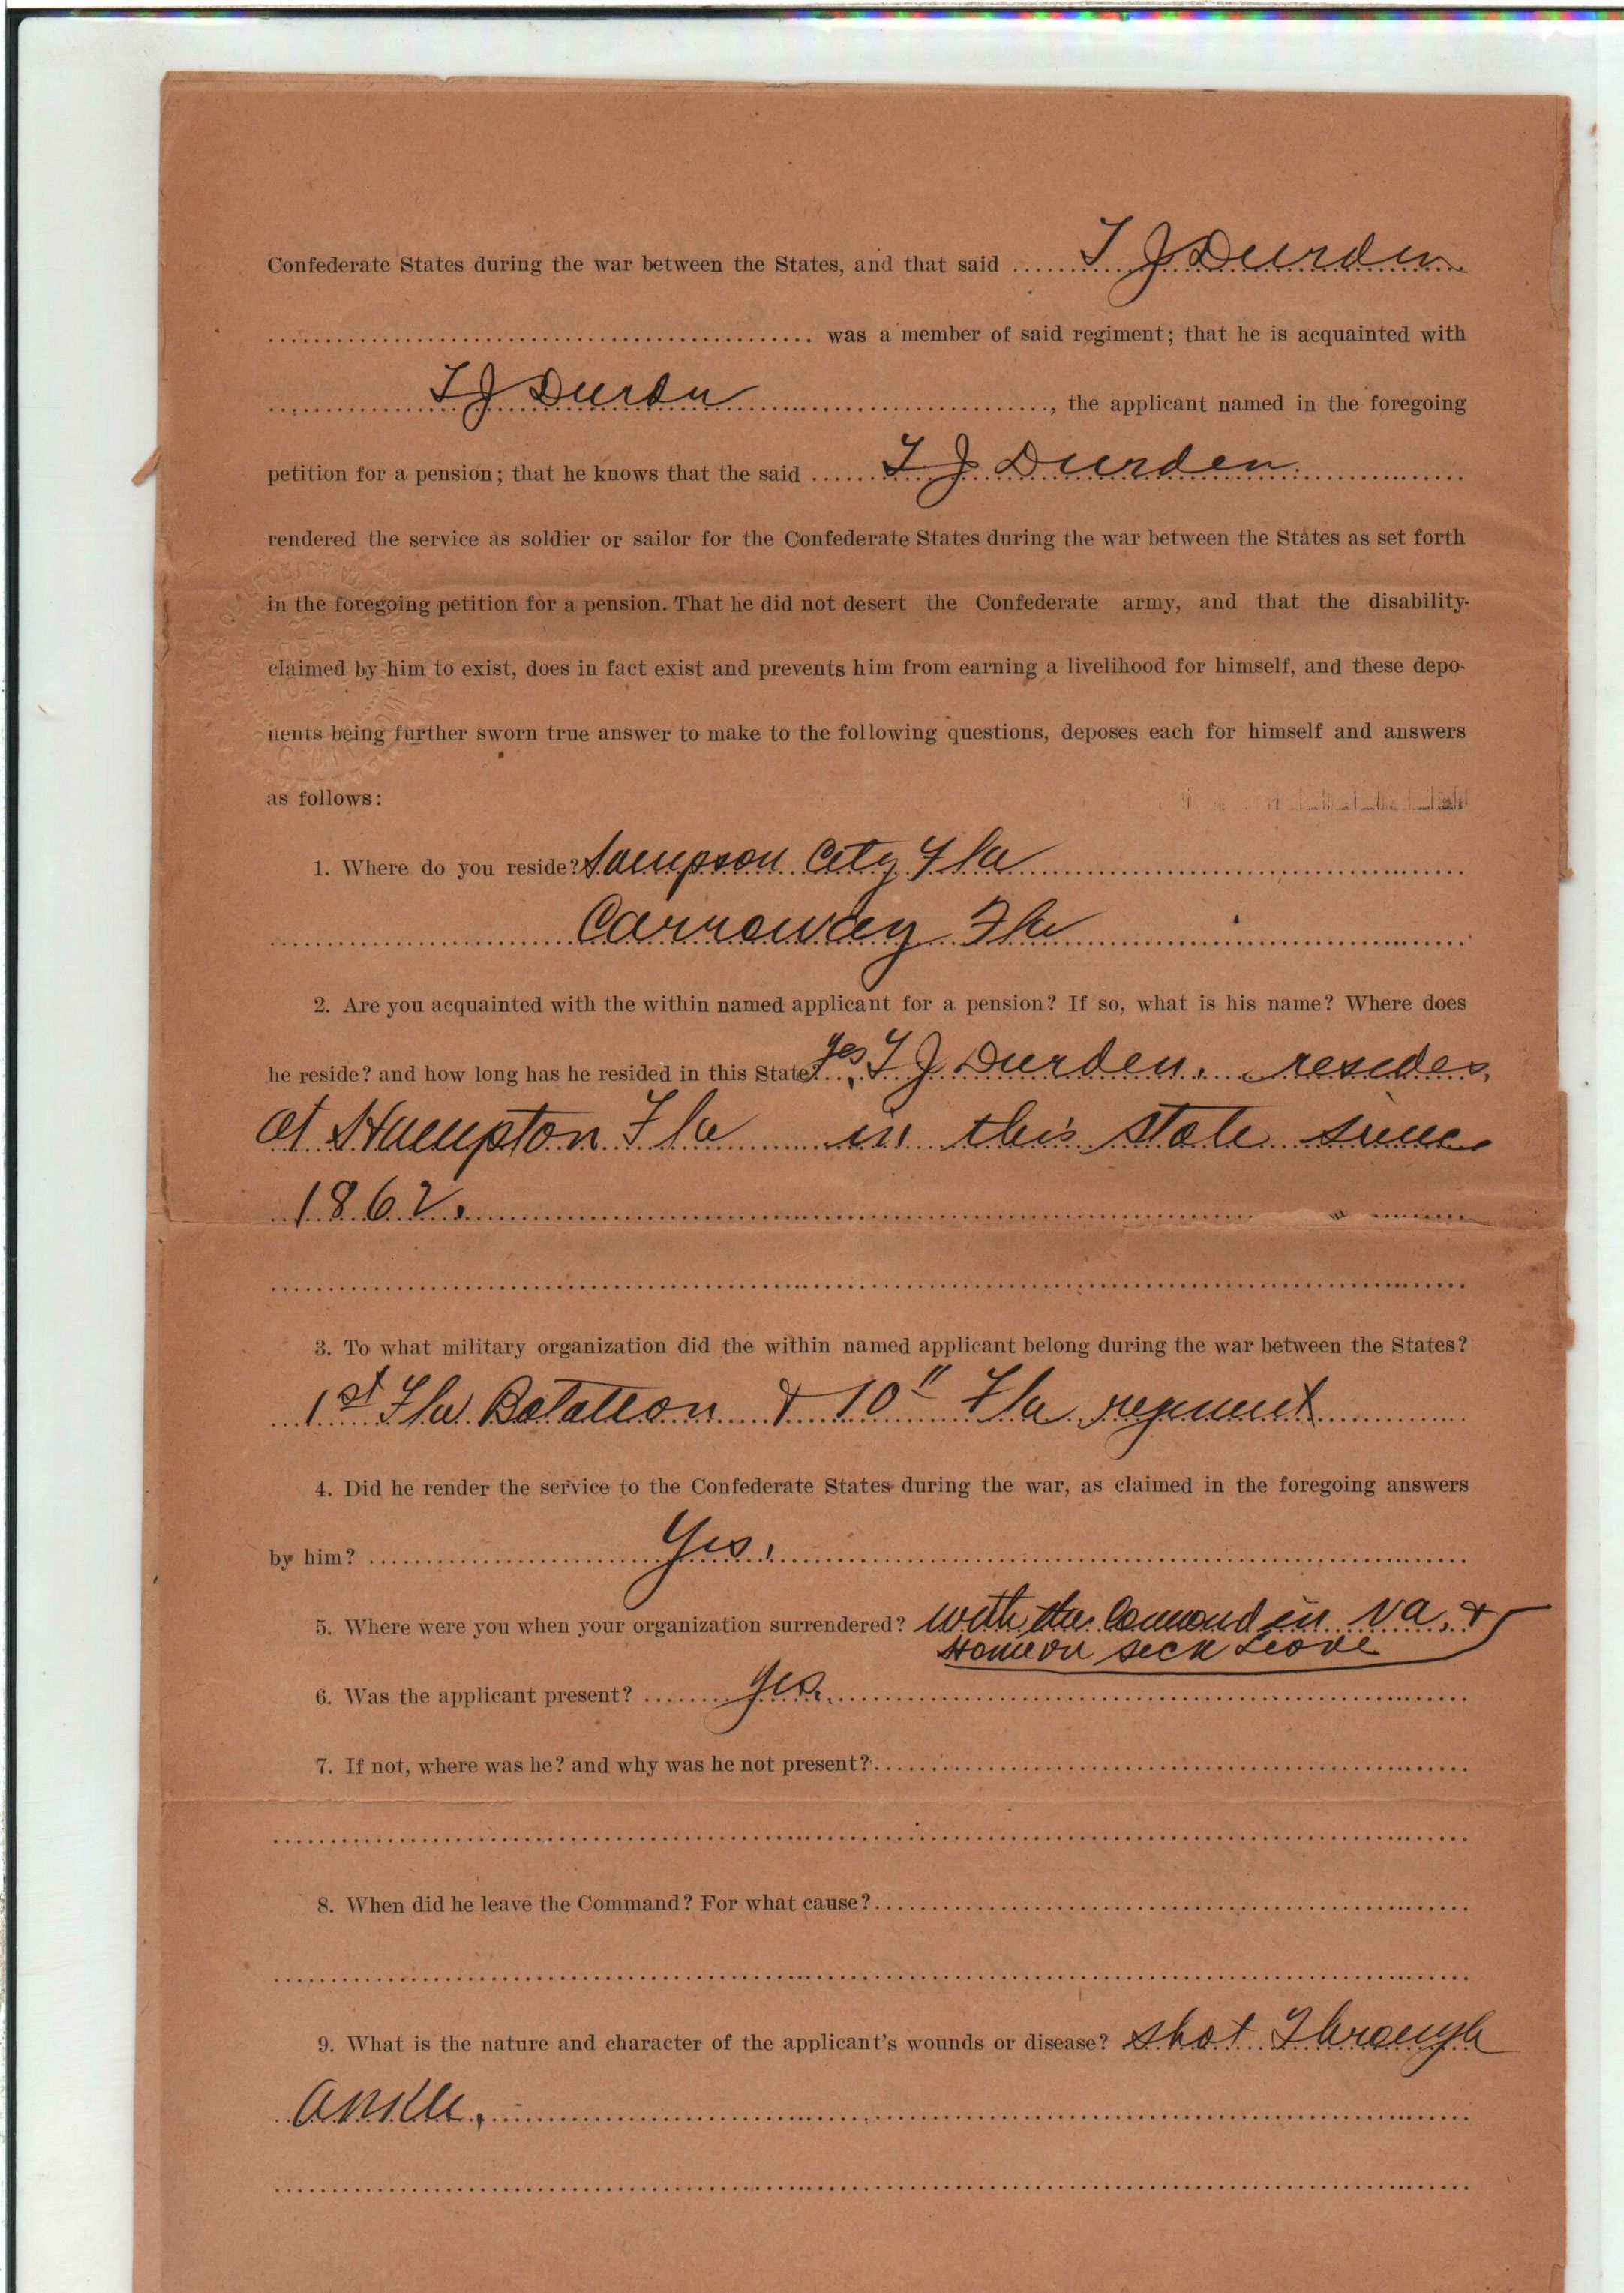 Confederate States during the war between the States, and that said ...... T J Durden
was a member of said regiment; that he is acquainted with
T J Durdn, the applicant named in the foregoing
petition for a pension; that he knows that the said ...... T J Durden.
rendered the service as soldier or sailor for the Confederate States during the war between the States as set forth
in the foregoing petition for a pension. That he did not desert the Confederate army, and that the disability
claimed by him to exist, does in fact exist and prevents him from earning a livelihood for himself, and these depo-
nents being further sworn true answer to make to the following questions, deposes each for himself and answers
as follows:
1. Where do you reside? Sampson City Fla
Carraway Fla
2. Are you acquainted with the within named applicant for a pension? If so, what is his name? Where does
he reside? and how long has he resided in this State? yes, T J Durden. resides
at Hampton Fla in this state since
1862.
3. To what military organization did the within named applicant belong during the war between the States?
1st Fla Batalion & 10" Fla regiment
4. Did he render the service to the Confederate States during the war, as claimed in the foregoing answers
by him? Yes.
5. Where were you when your organization surrendered? with the Comand in Va. &
Home on sick Leave
6. Was the applicant present? Yes.
7. If not, where was he? and why was he not present?
8. When did he leave the Command? For what cause?
9. What is the nature and character of the applicant's wounds or disease? Shot Through
Ankle.